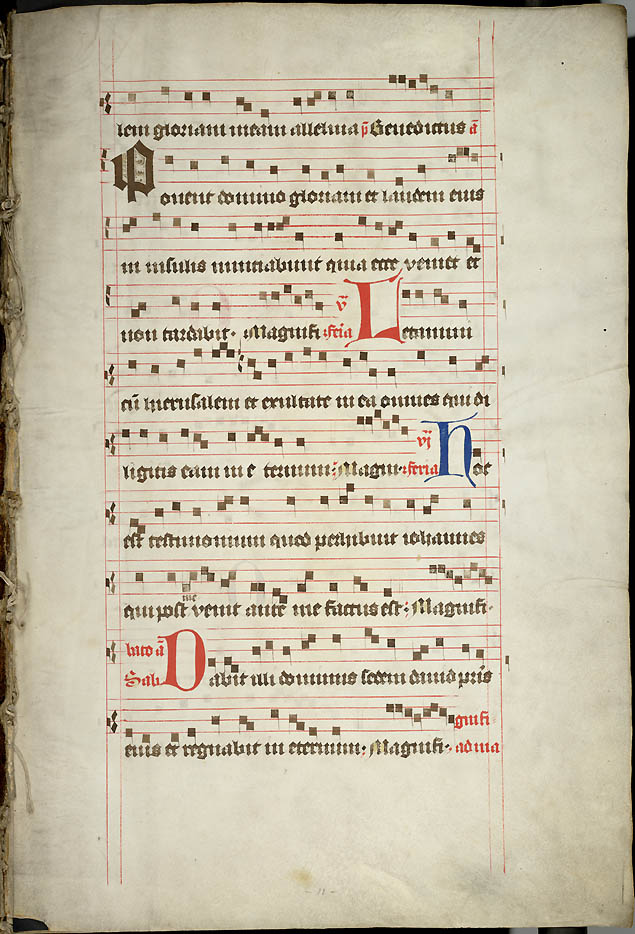 lem gloriam meam alleluia p̄ Benedictus ā
Ponent domino gloriam et laudem eius
in insulis nunciabunt quia ecce veniet et
non tardabit· Magnifi· feria v̄ Letamini
cū iherusalem et exultate in ea omnes qui di
ligitis eam in e ternum: Magni· feria vj Hoc
est testimonium quod perhibuit iohannes
me
qui post venit ante me factus est: Magnifi·
Sabbato ā Dabit illi dominus sedem dauid pr̄is
eius et regnabit in eternum· Magnifi· ad magnifi
11